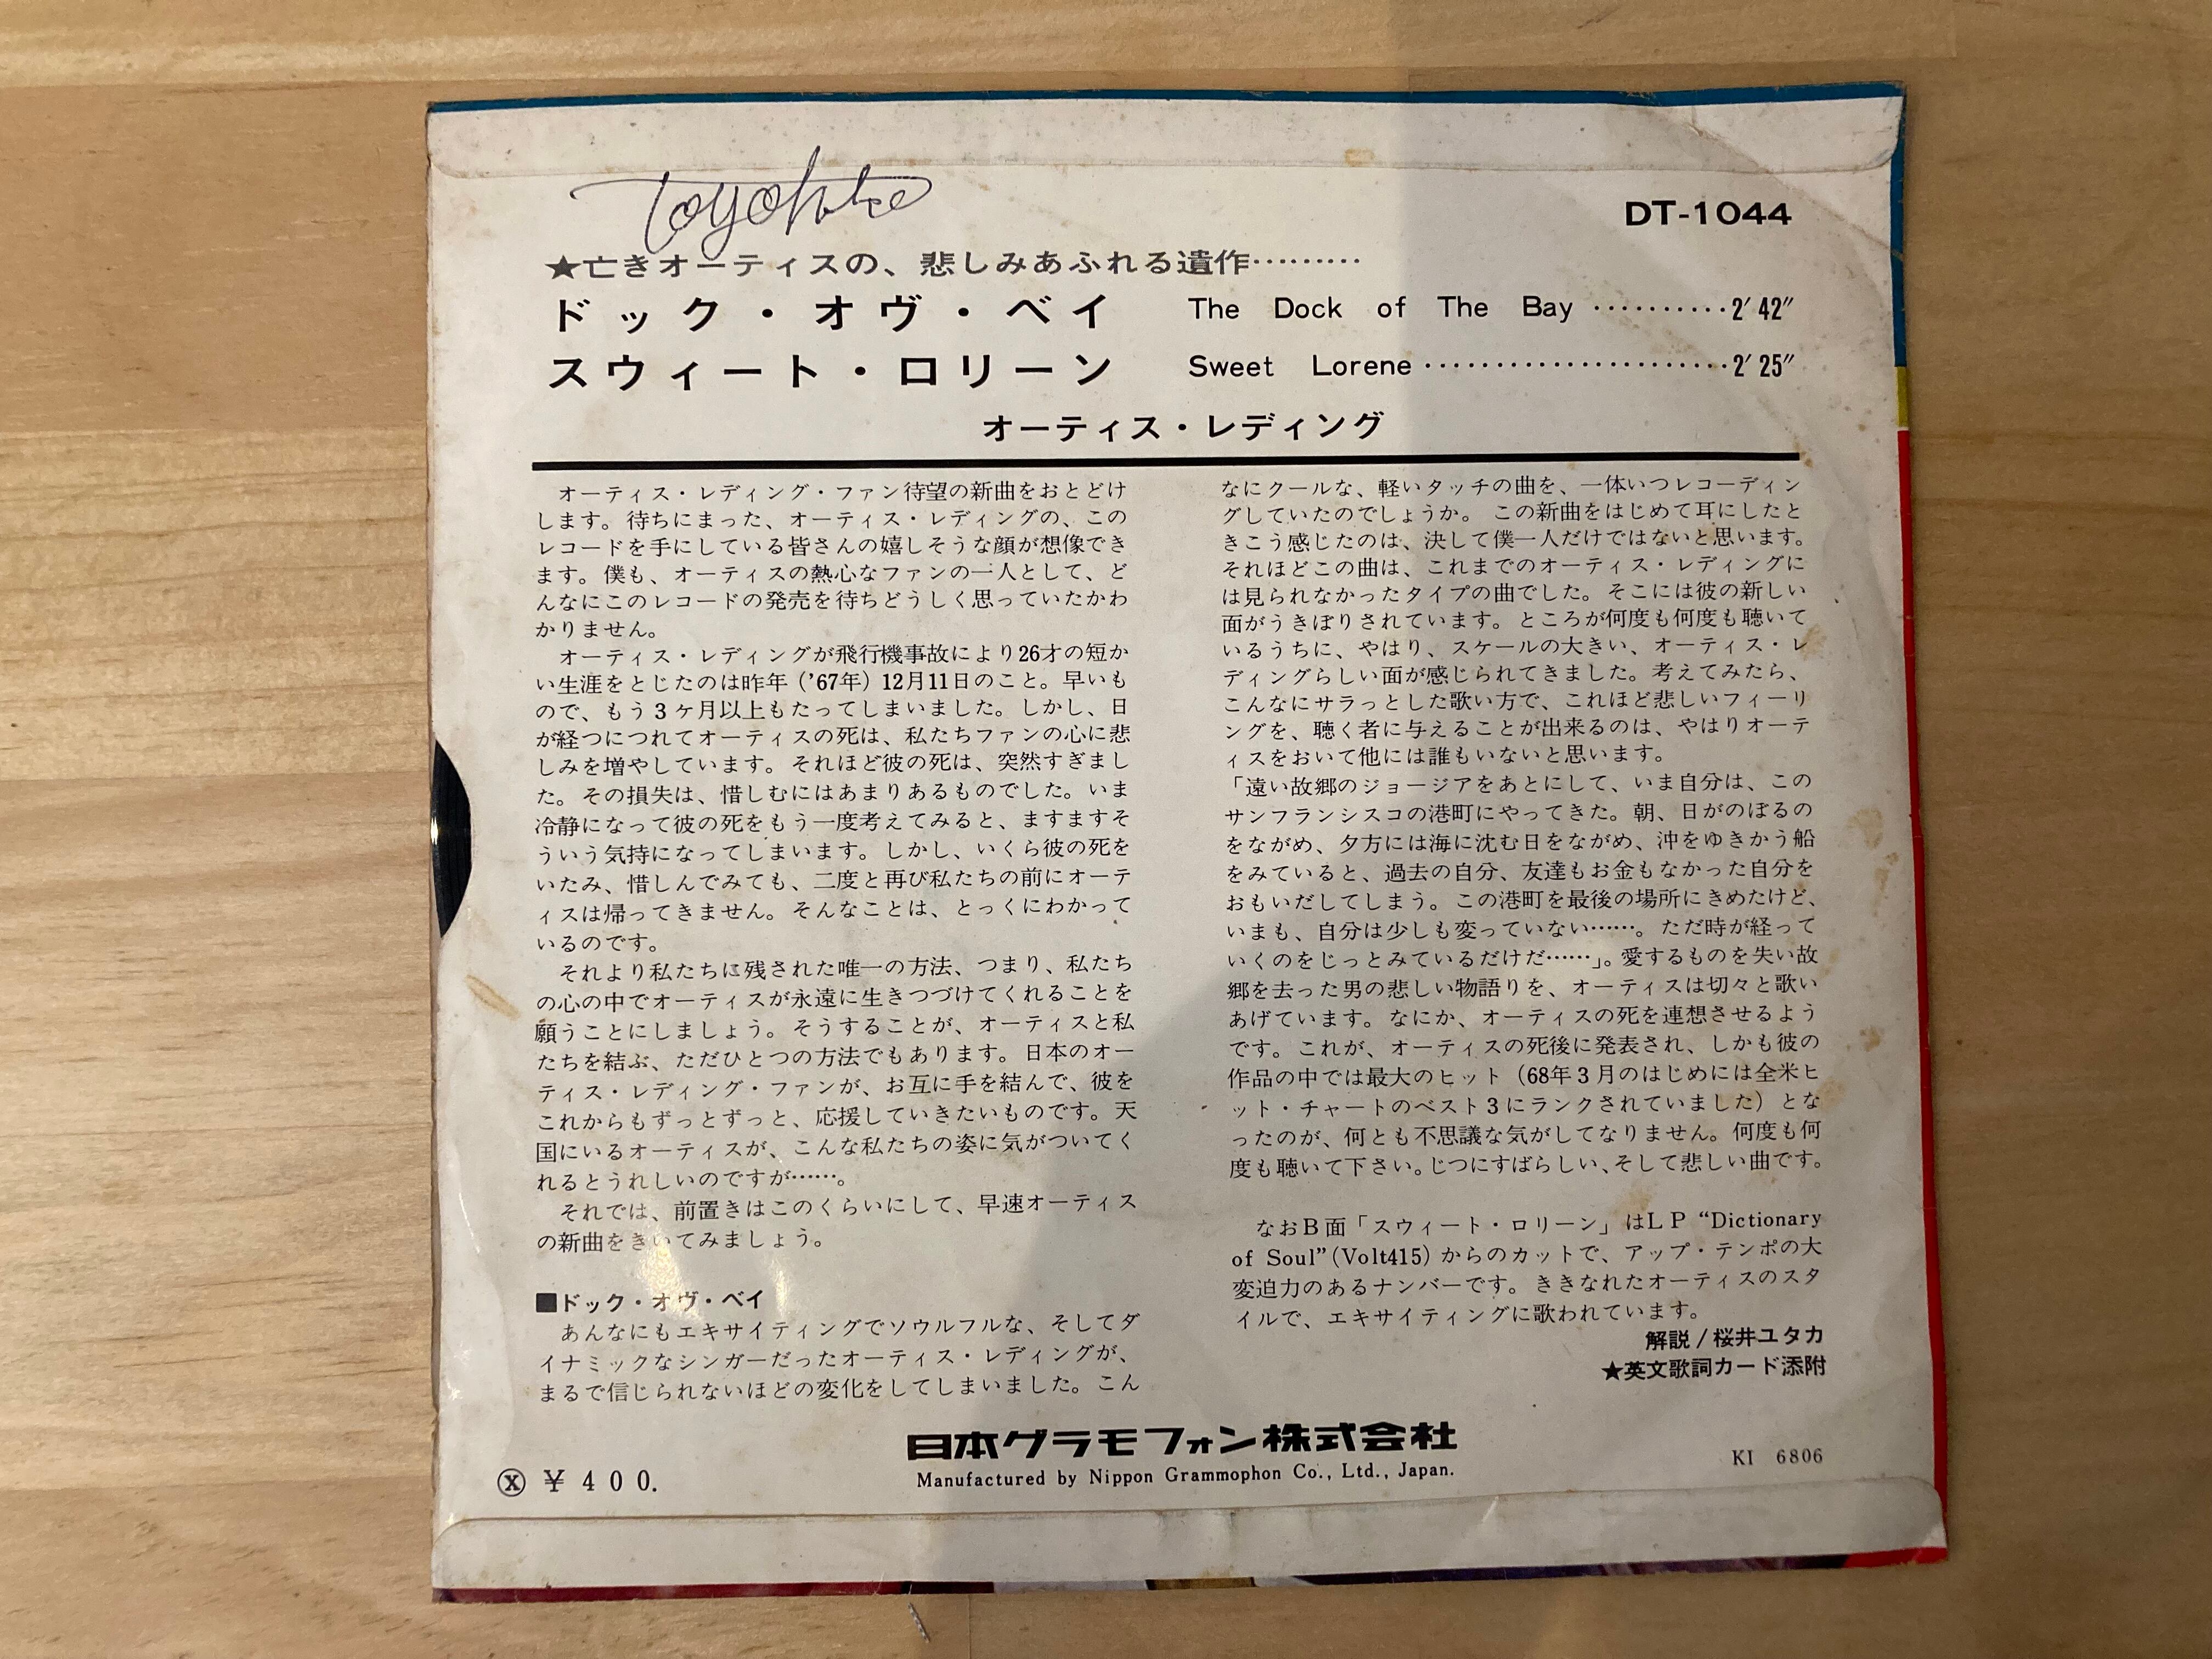 DT-1044
★亡きオーティスの、悲しみあふれる遺作………
ドック・オヴ・ベイ The Dock of The Bay ··········2′42″
スウィート・ロリーン Sweet Lorene ······················2′25″
オーティス・レディング
オーティス・レディング・ファン待望の新曲をおとどけ
します。待ちにまった、オーティス・レディングの、この
レコードを手にしている皆さんの嬉しそうな顔が想像でき
ます。僕も、オーティスの熱心なファンの一人として、ど
んなにこのレコードの発売を待ちどうしく思っていたかわ
かりません。
オーティス・レディングが飛行機事故により26才の短か
い生涯をとじたのは昨年（’67年）12月11日のこと。早いも
ので、もう3ヶ月以上もたってしまいました。しかし、日
が経つにつれてオーティスの死は、私たちファンの心に悲
しみを増やしています。それほど彼の死は、突然すぎまし
た。その損失は、惜しむにはあまりあるものでした。いま
冷静になって彼の死をもう一度考えてみると、ますますそ
ういう気持になってしまいます。しかし、いくら彼の死を
いたみ、惜しんでみても、二度と再び私たちの前にオーテ
ィスは帰ってきません。そんなことは、とっくにわかって
いるのです。
それより私たちに残された唯一の方法、つまり、私たち
の心の中でオーティスが永遠に生きつづけてくれることを
願うことにしましょう。そうすることが、オーティスと私
たちを結ぶ、ただひとつの方法でもあります。日本のオー
ティス・レディング・ファンが、お互に手を結んで、彼を
これからもずっとずっと、応援していきたいものです。天
国にいるオーティスが、こんな私たちの姿に気がついてく
れるとうれしいのですが……。
それでは、前置きはこのくらいにして、早速オーティス
の新曲をきいてみましょう。
■ドック・オヴ・ベイ
あんなにもエキサイティングでソウルフルな、そしてダ
イナミックなシンガーだったオーティス・レディングが、
まるで信じられないほどの変化をしてしまいました。こん
なにクールな、軽いタッチの曲を、一体いつレコーディン
グしていたのでしょうか。この新曲をはじめて耳にしたと
きこう感じたのは、決して僕一人だけではないと思います。
それほどこの曲は、これまでのオーティス・レディングに
は見られなかったタイプの曲でした。そこには彼の新しい
面がうきぼりされています。ところが何度も何度も聴いて
いるうちに、やはり、スケールの大きい、オーティス・レ
ディングらしい面が感じられてきました。考えてみたら、
こんなにサラっとした歌い方で、これほど悲しいフィーリ
ングを、聴く者に与えることが出来るのは、やはりオーテ
ィスをおいて他には誰もいないと思います。
「遠い故郷のジョージアをあとにして、いま自分は、この
サンフランシスコの港町にやってきた。朝、日がのぼるの
をながめ、夕方には海に沈む日をながめ、沖をゆきかう船
をみていると、過去の自分、友達もお金もなかった自分を
おもいだしてしまう。この港町を最後の場所にきめたけど、
いまも、自分は少しも変っていない……。ただ時が経って
いくのをじっとみているだけだ……」。愛するものを失い故
郷を去った男の悲しい物語りを、オーティスは切々と歌い
あげています。なにか、オーティスの死を連想させるよう
です。これが、オーティスの死後に発表され、しかも彼の
作品の中では最大のヒット（68年3月のはじめには全米ヒ
ット・チャートのベスト3にランクされていました）とな
ったのが、何とも不思議な気がしてなりません。何度も何
度も聴いて下さい。じつにすばらしい、そして悲しい曲です。
なおB面「スウィート・ロリーン」はLP “Dictionary
of Soul”(Volt415) からのカットで、アップ・テンポの大
変迫力のあるナンバーです。ききなれたオーティスのスタ
イルで、エキサイティングに歌われています。
解説/桜井ユタカ
★英文歌詞カード添附
日本グラモフォン株式会社
Manufactured by Nippon Grammophon Co., Ltd., Japan.
KI 6806
Ⓧ ¥400.